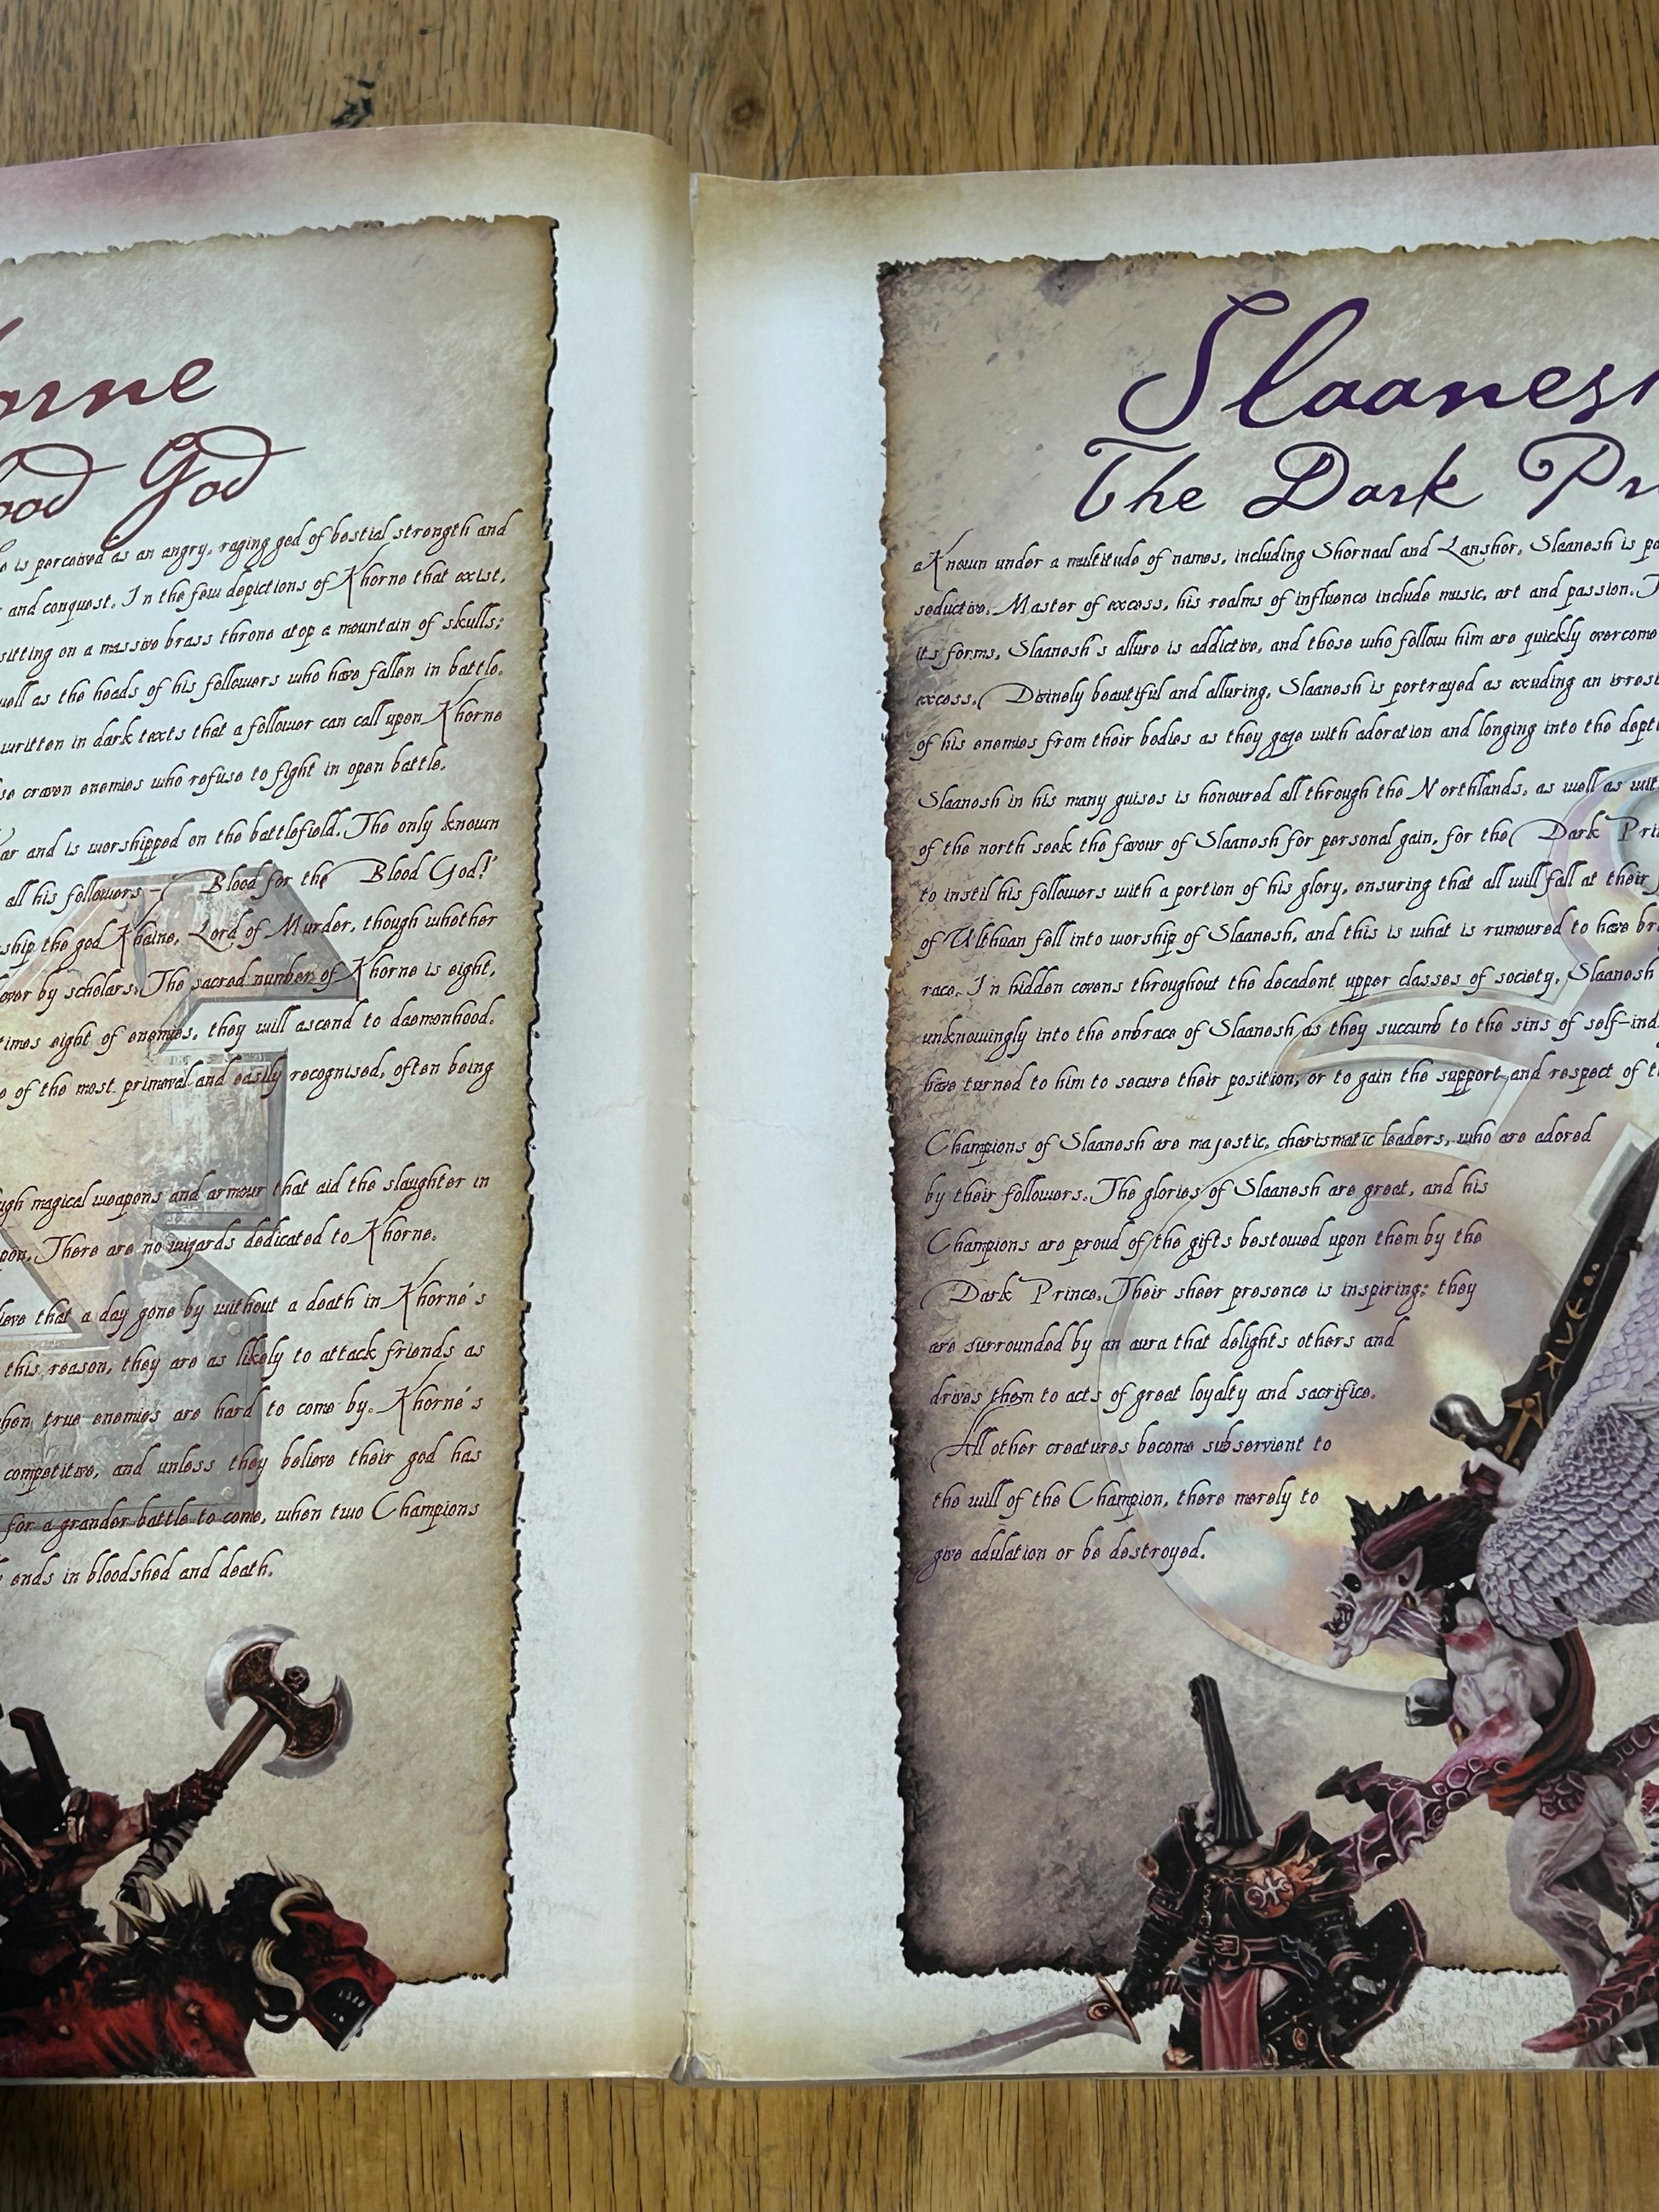 orne
ood God
is perceived as an angry, raging god of bestial strength and
and conquest. In the few depictions of Khorne that exist,
sitting on a massive brass throne atop a mountain of skulls;
well as the heads of his followers who have fallen in battle.
written in dark texts that a follower can call upon Khorne
se craven enemies who refuse to fight in open battle.
ar and is worshipped on the battlefield. The only known
all his followers – Blood for the Blood God!'
ship the god Khaine, Lord of Murder, though whether
over by scholars. The sacred number of Khorne is eight,
times eight of enemies, they will ascend to daemonhood.
e of the most primeval and easily recognised, often being
ugh magical weapons and armour that aid the slaughter in
pon. There are no wizards dedicated to Khorne.
lieve that a day gone by without a death in Khorne's
this reason, they are as likely to attack friends as
hen true enemies are hard to come by. Khorne's
competitive, and unless they believe their god has
for a grander battle to come, when two Champions
ends in bloodshed and death.
Slaanesh
The Dark Pr
Known under a multitude of names, including Shornaal and Lanshor, Slaanesh is pe
seductive. Master of excess, his realms of influence include music, art and passion. T
its forms, Slaanesh's allure is addictive, and those who follow him are quickly overcome
excess. Divinely beautiful and alluring, Slaanesh is portrayed as exuding an irresi
of his enemies from their bodies as they gaze with adoration and longing into the dept
Slaanesh in his many guises is honoured all through the Northlands, as well as wit
of the north seek the favour of Slaanesh for personal gain, for the Dark Prin
to instil his followers with a portion of his glory, ensuring that all will fall at their
of Ulthuan fell into worship of Slaanesh, and this is what is rumoured to have br
race. In hidden covens throughout the decadent upper classes of society, Slaanesh
unknowingly into the embrace of Slaanesh as they succumb to the sins of self-ind
have turned to him to secure their position, or to gain the support and respect of t
Champions of Slaanesh are majestic, charismatic leaders, who are adored
by their followers. The glories of Slaanesh are great, and his
Champions are proud of the gifts bestowed upon them by the
Dark Prince. Their sheer presence is inspiring; they
are surrounded by an aura that delights others and
drives them to acts of great loyalty and sacrifice.
All other creatures become subservient to
the will of the Champion, there merely to
give adulation or be destroyed.